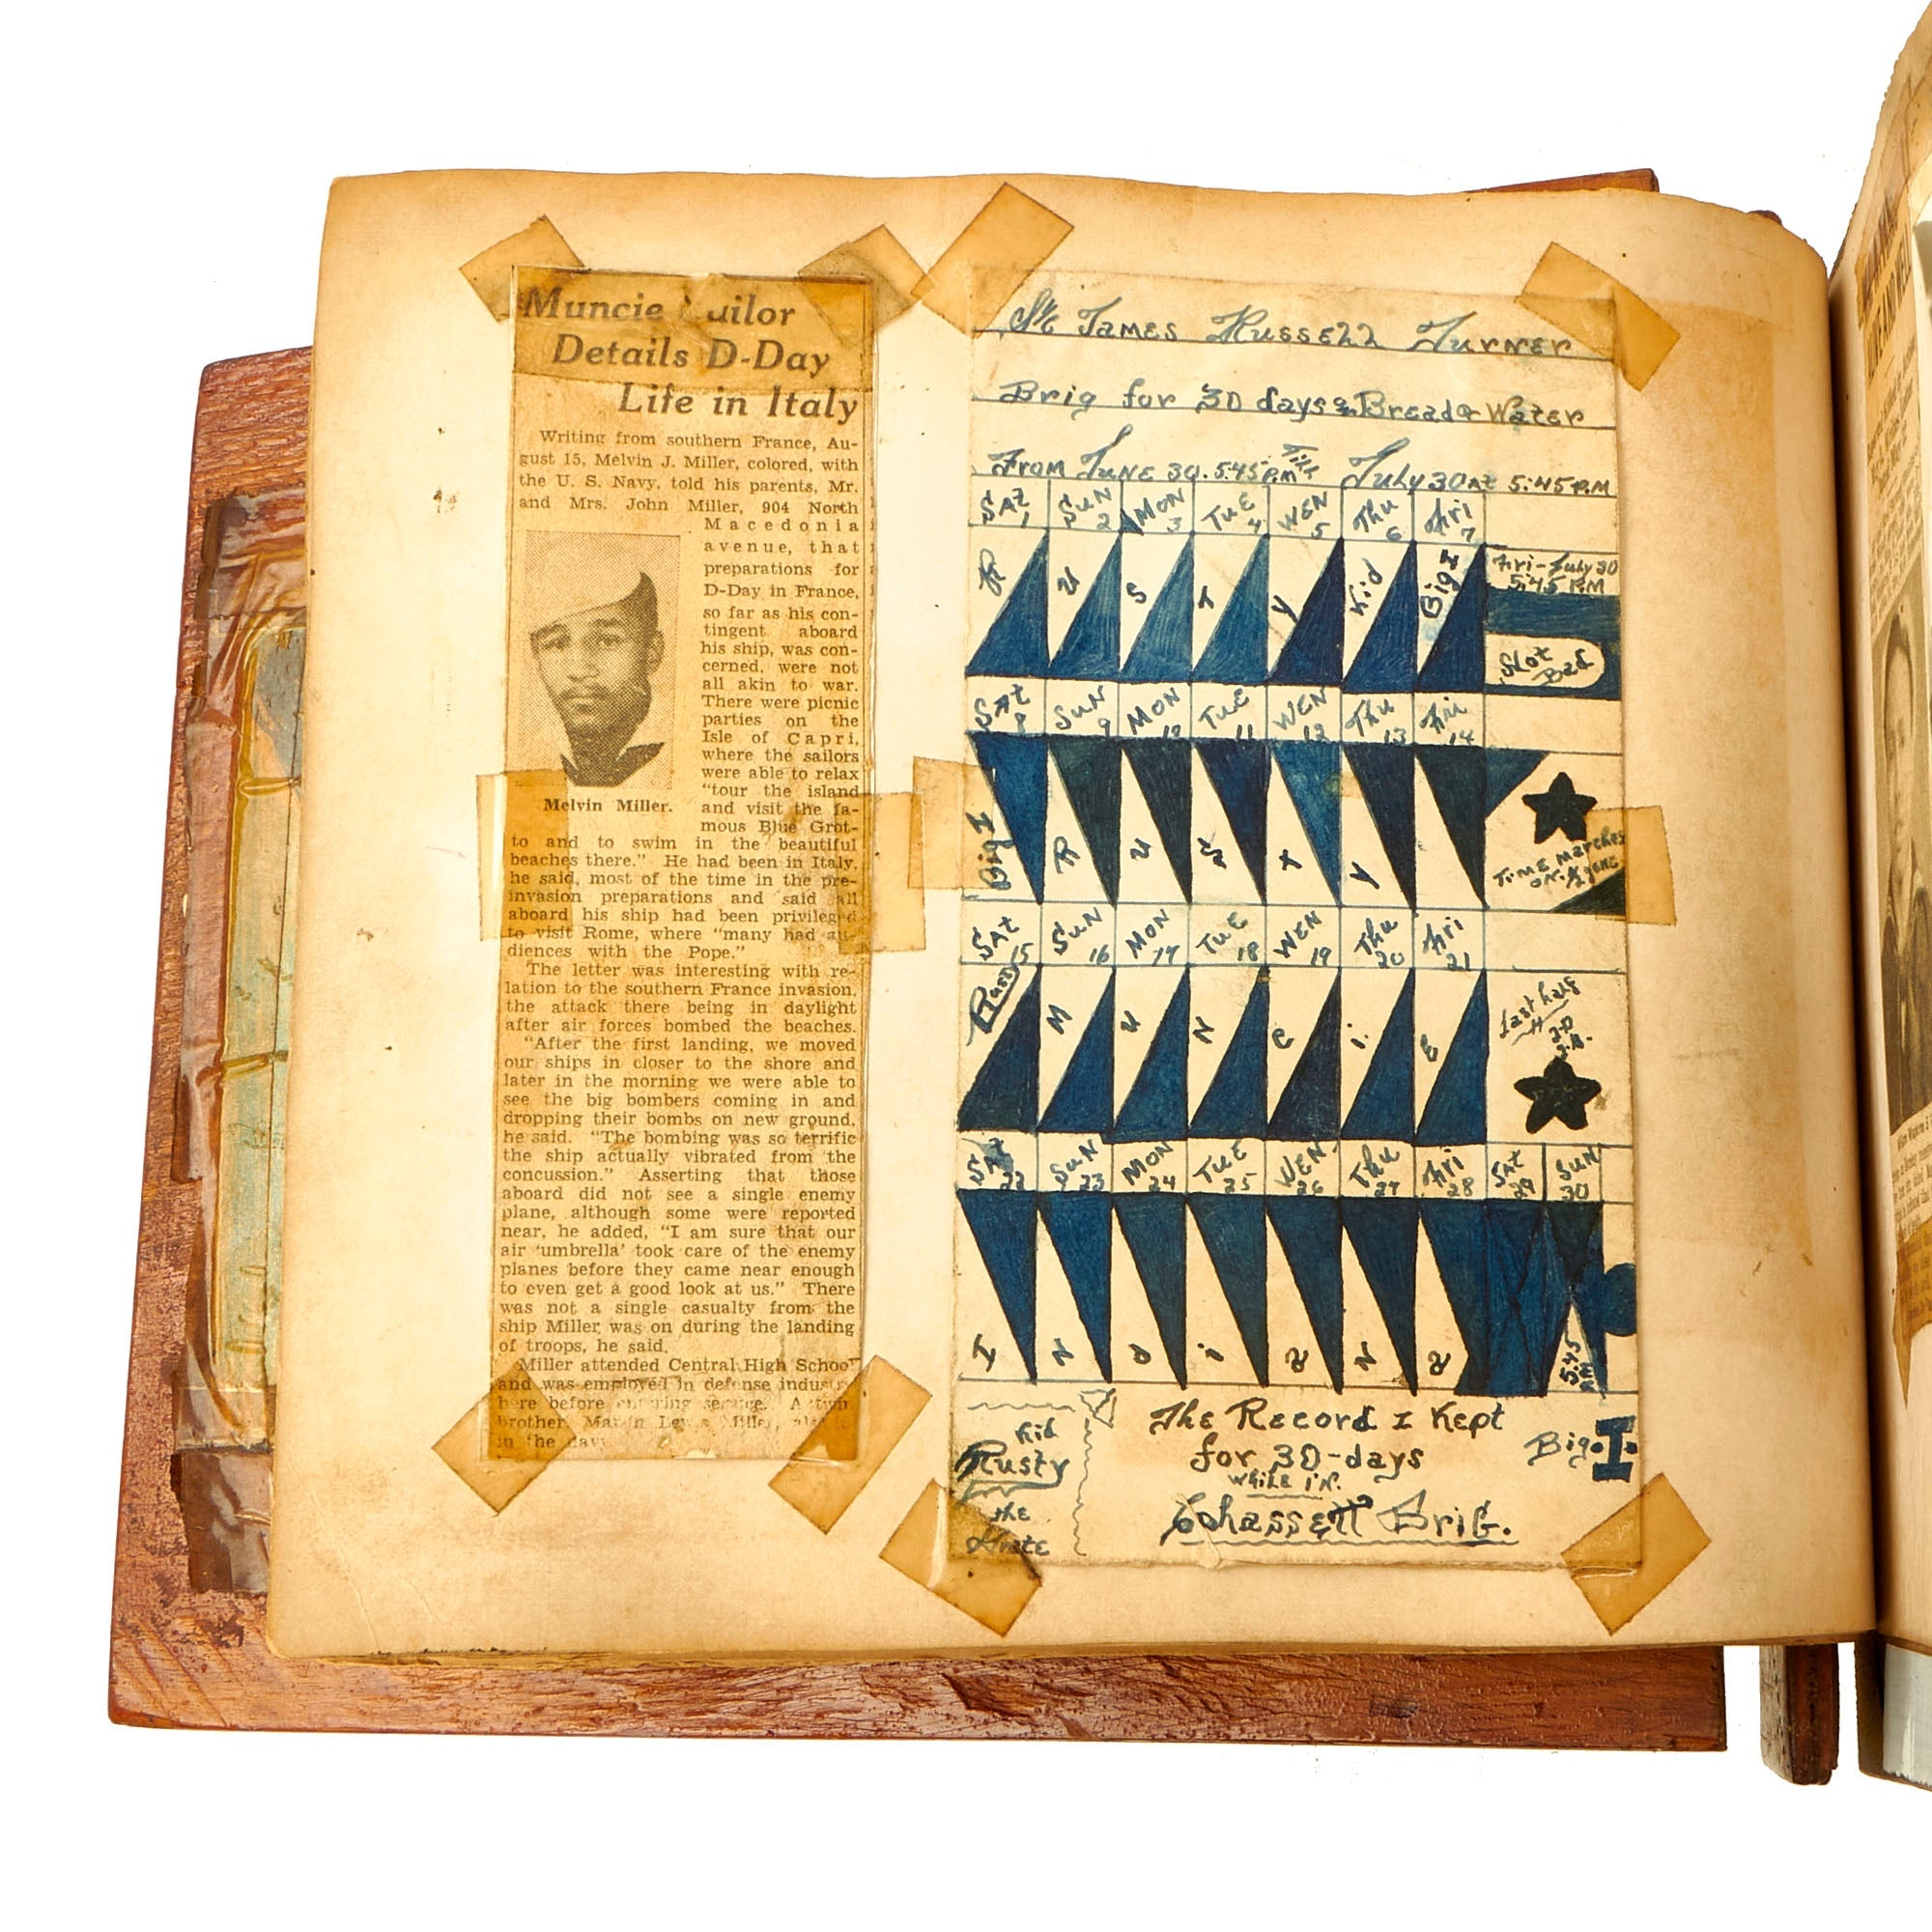 Muncie Sailor
Details D-Day
Life in Italy
Writing from southern France, Au-
gust 15, Melvin J. Miller, colored, with
the U. S. Navy, told his parents, Mr.
and Mrs. John Miller, 904 North
Macedonia
avenue, that
preparations for
D-Day in France,
so far as his con-
tingent aboard
his ship, was con-
cerned, were not
all akin to war.
There were picnic
parties on the
Isle of Capri,
where the sailors
were able to relax
"tour the island
and visit the fa-
mous Blue Grot-
Melvin Miller.
to and to swim in the beautiful
beaches there." He had been in Italy,
he said, most of the time in the pre-
invasion preparations and said all
aboard his ship had been privileged
to visit Rome, where "many had au-
diences with the Pope."
The letter was interesting with re-
lation to the southern France invasion,
the attack there being in daylight
after air forces bombed the beaches.
"After the first landing, we moved
our ships in closer to the shore and
later in the morning we were able to
see the big bombers coming in and
dropping their bombs on new ground,
he said. "The bombing was so terrific
the ship actually vibrated from the
concussion." Asserting that those
aboard did not see a single enemy
plane, although some were reported
near, he added, "I am sure that our
air 'umbrella' took care of the enemy
planes before they came near enough
to even get a good look at us." There
was not a single casualty from the
ship Miller was on during the landing
of troops, he said.
Miller attended Central High School
and was employed in defense industry
here before entering service. A twin
brother, Marvin Lewis Miller, also is
in the navy
James Russell Turner
Brig for 30 days on Bread & Water
From June 30. 5:45 P.M Till July 30 At 5:45 P.M
SAt 1 SuN 2 MON 3 TuE 4 WEN 5 Thu 6 Fri 7
R u S T y Kid Big I
Fri-July 30
5:45 P.M
Not
Bad
SAt 8 SuN 9 MON 10 TuE 11 WEN 12 Thu 13 Fri 14
Big I R u S t y
TiME Marches
ON. 1/2 gone
SAt 15 SuN 16 MON 17 TuE 18 WEN 19 Thu 20 Fri 21
Russ M u N c i E
Last half
SAt 22 SuN 23 MON 24 TuE 25 WEN 26 Thu 27 Fri 28 SAt 29 SuN 30
I N d i a N a
5:45
P.M
Kid
Rusty
the
The Record I Kept
for 30-days
While iN.
Chassett Brig.
Big. I.